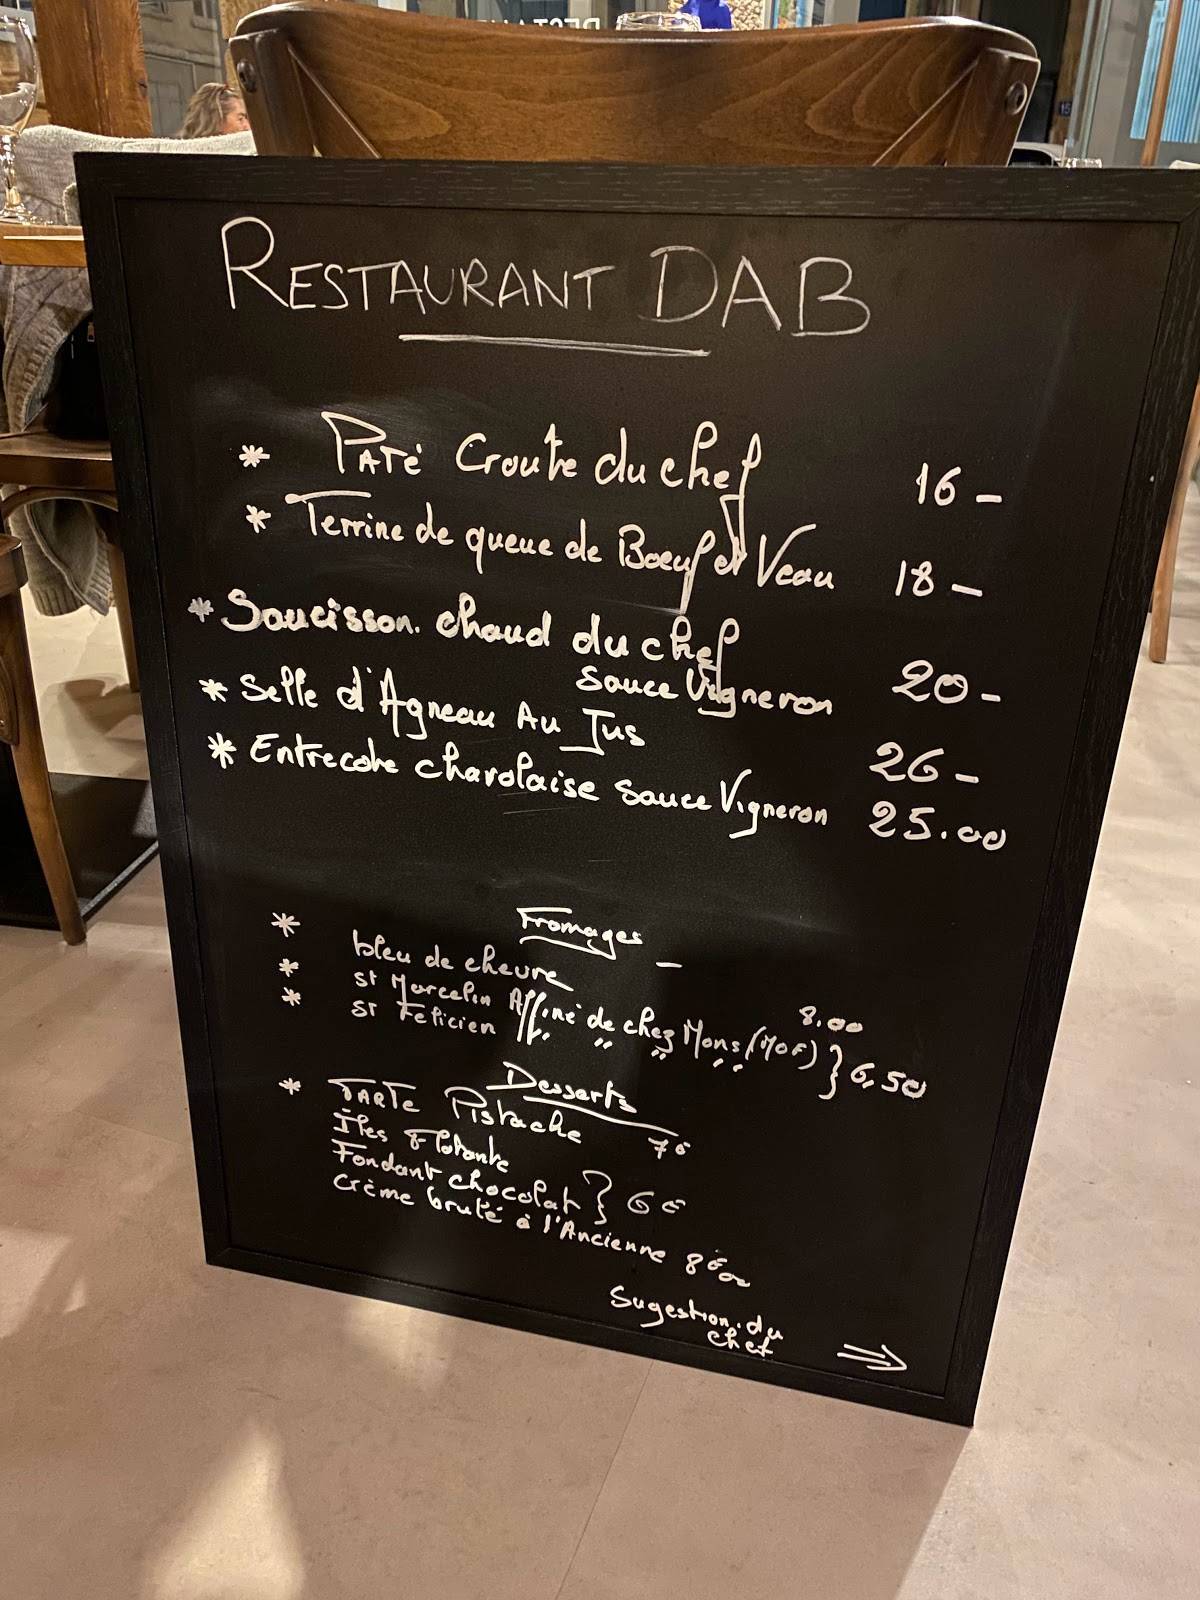 RESTAURANT DAB
* PATÉ Croute du chef 16 -
* Terrine de queue de Boeuf et Veau 18 -
* Saucisson chaud du chef
Sauce Vigneron 20 -
* Selle d'Agneau Au Jus 26 -
* Entrecote charolaise sauce Vigneron 25.00
Fromages
* bleu de chevre - 8.00
* St Marcelin Affiné de chez Mons (MOF)
* St Felicien " " " " } 6.50
Desserts
* TARTE Pistache 7€
Îles flotante
Fondant chocolat } 6€
Crème brulé à l'Ancienne 8€00
Sugestion du
chef ⇒
15